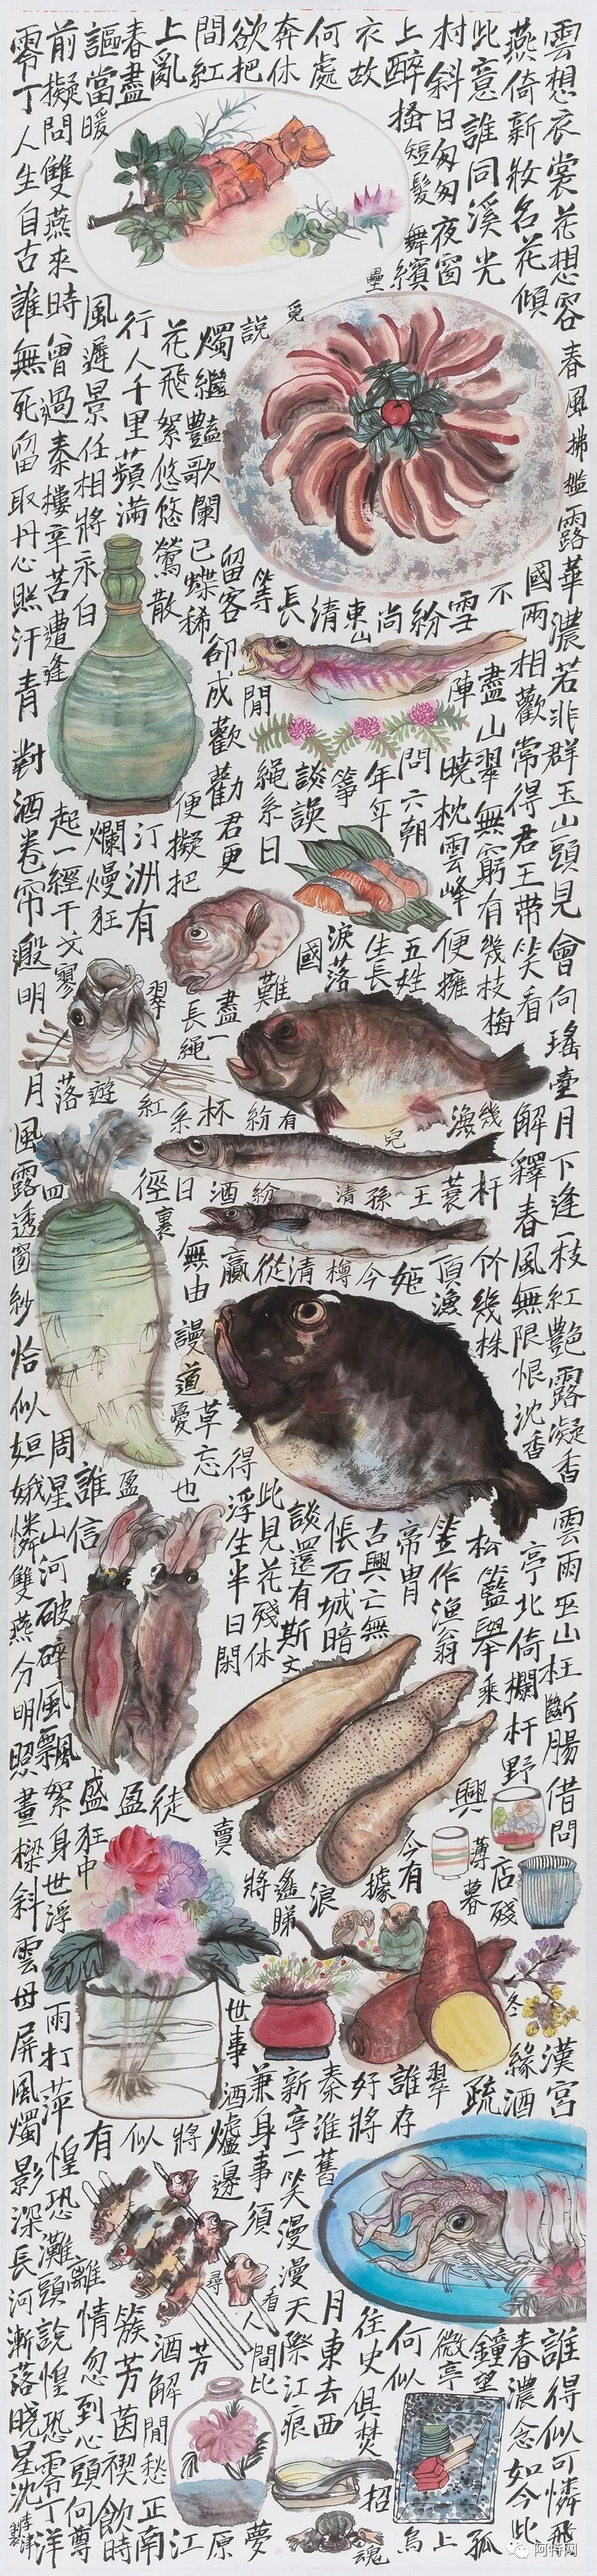 雲想衣裳花想容春風拂檻露華濃若非群玉山頭見會向瑤臺月下逢一枝紅艷露凝香雲雨巫山枉斷腸借問
漢宮
誰得似可憐飛
燕倚新妝名花傾
國兩相歡常得君王帶笑看
解釋春風無限恨沈香
亭北倚欄杆野
店殘
冬
緣酒
春濃念如今此
此意誰同溪光
不
盡山翠無窮有幾枝梅
幾
杆
竹幾株
松籃輿乘
興
薄暮
疏
鐘望
孤
村斜日匆匆夜窗
雪
陣
曉枕雲峰便擁
漁
蓑
頂漁
笠作漁翁
上醉搔短髮
舞繽
紛
尚
東山
清
長
等
問六朝
五姓
王
孫
清
帝胄
今有
誰存
微亭
何似
衣故
何處
奔休
欲把
間紅
上亂
春盡
謳當暖
風遲景任相將永日
行人千里蘋滿
汀洲有
爛熳狂
花飛絮悠悠鶯散
燭繼艷歌闌已蝶稀
留客
卻成歡勸君更
便擬把
繩系日
年年
生長
淚落
國
難
盡一
長繩
系
日
杯
酒
紛
紛
有
兒
無由
謾道
草忘
憂
也
得
浮生半日閑
此見花殘休
談還有斯文
悵石城暗
古興亡無
據
浪
遙睇
將
賣
世事
酒爐邊
兼身事須
新亭一笑漫漫天際江痕
秦淮舊
月東去西
好將
往史俱焚
招
魂
夢
原
江
南
正
前擬問雙燕來時曾過秦樓辛苦遭逢
起一經干戈寥
落
周星山河破碎風飄絮身世浮
雨打萍惶恐灘頭說惶恐零丁洋
零丁人生自古誰無死留取丹心照汗青對酒卷帘邀明
月
風露透窗紗恰似姮娥憐雙燕分明照畫樑斜雲母屏風燭影深長河漸落曉星沈
離情忽到心頭何
簇芳茵禊飲時
酒解閒愁
芳
尋
看
人
間比
有
似
將